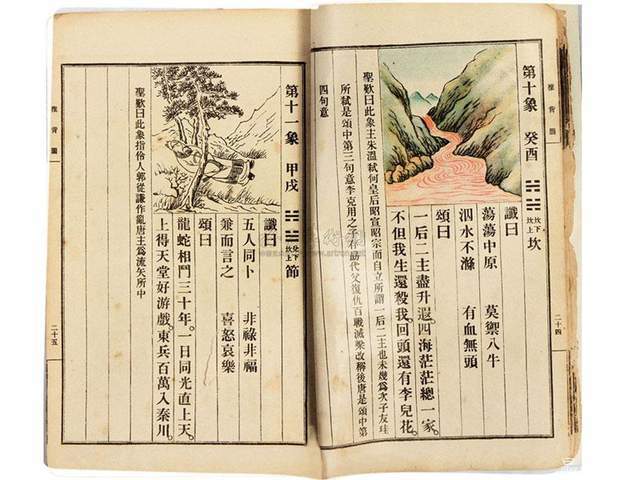 推背圖
二十四
第十象 癸酉 坎下坎上 坎
讖曰
蕩蕩中原 莫禦八牛
泅水不滌 有血無頭
頌曰
一后二主盡升遐。四海茫茫總一家。
不但我生還殺我。回頭還有李兒花。
聖歎曰此象主朱溫弒何皇后昭宣昭宗而自立所謂一后二主也未幾為次子友珪
所弒是頌中第三句意李克用之子存勗代父復仇百戰滅梁改稱後唐是頌中第
四句意
第十一象 甲戌 兌下坎上 節
讖曰
五人同卜 非祿非福
兼而言之 喜怒哀樂
頌曰
龍蛇相鬥三十年。一日同光直上天。
上得天堂好游戲。東兵百萬入秦川。
聖歎曰此象指伶人郭從謙作亂唐主為流矢所中
推背圖
二十五